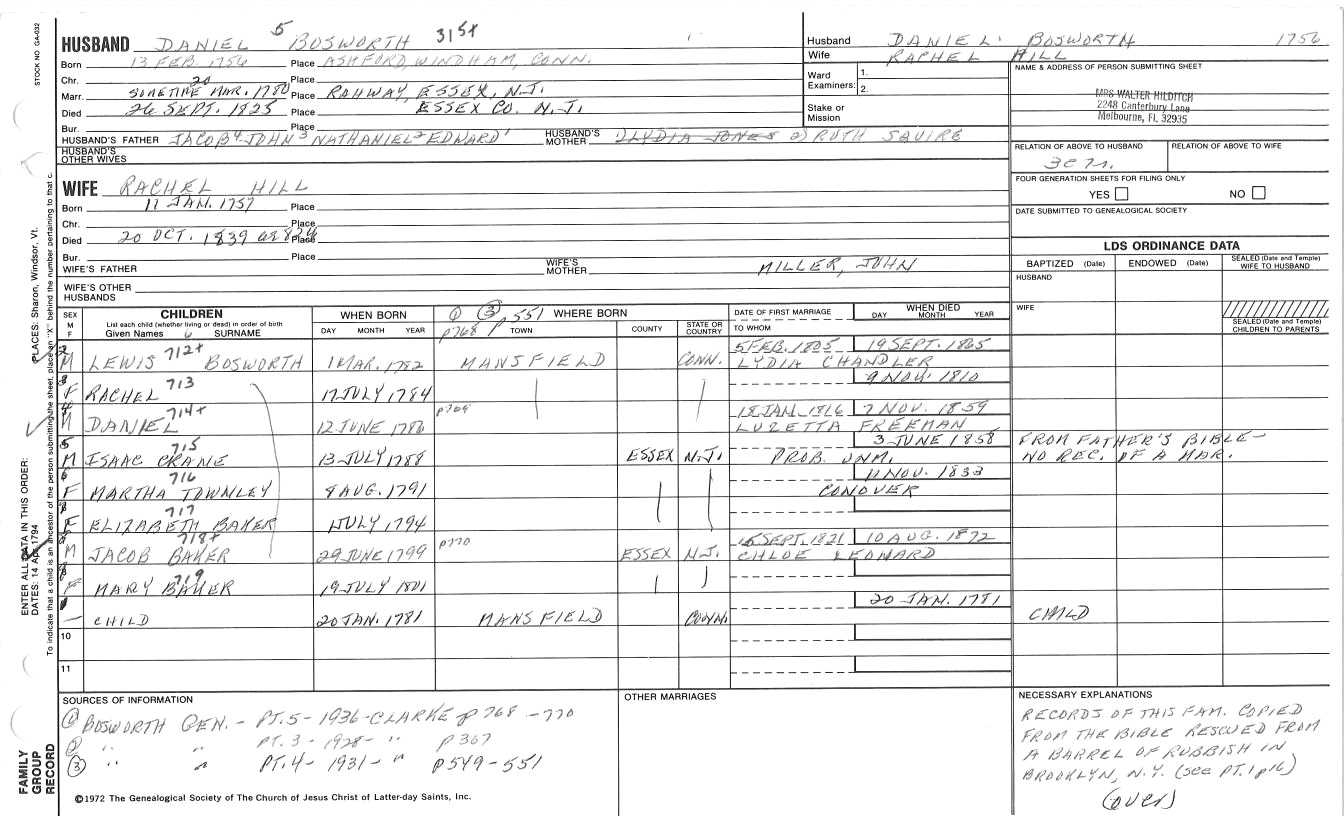 STOCK NO. GA-032
HUSBAND DANIEL 5 BOSWORTH 315+
Born 13 FEB. 1756 Place ASHFORD, WINDHAM, CONN.
Chr. 20 Place
Marr. SOMETIME MAR. 1780 Place ROHWAY, ESSEX, N.J.
Died 26 SEPT. 1825 Place ESSEX CO. N.J.
Bur. Place
HUSBAND'S FATHER JACOB 4 JOHN 3 NATHANIEL 2 EDWARD 1 HUSBAND'S MOTHER 1) LYDIA JONES 2) RUTH SQUIRE
HUSBAND'S OTHER WIVES
Husband DANIEL BOSWORTH 1756
Wife RAPHEL HILL
Ward Examiners: 1.
2.
Stake or Mission
NAME & ADDRESS OF PERSON SUBMITTING SHEET
MRS WALTER HILDITCH
2248 Canterbury Lane
Melbourne, FL 32935
RELATION OF ABOVE TO HUSBAND RELATION OF ABOVE TO WIFE
3C7R.
FOUR GENERATION SHEETS FOR FILING ONLY
YES NO
DATE SUBMITTED TO GENEALOGICAL SOCIETY
WIFE RACHEL HILL
Born 11 JAN. 1757 Place
Chr. Place
Died 20 OCT. 1839 Place
Bur. Place
WIFE'S FATHER WIFE'S MOTHER MILLER, JOHN
WIFE'S OTHER HUSBANDS
LDS ORDINANCE DATA
BAPTIZED (Date) ENDOWED (Date) SEALED (Date and Temple) WIFE TO HUSBAND
HUSBAND
WIFE
SEALED (Date and Temple) CHILDREN TO PARENTS
SEX M F CHILDREN
List each child (whether living or dead) in order of birth
Given Names 6 SURNAME
WHEN BORN
DAY MONTH YEAR
① ③ p 551 WHERE BORN
p768 TOWN COUNTY STATE OR COUNTRY
DATE OF FIRST MARRIAGE
TO WHOM
WHEN DIED
DAY MONTH YEAR
2 M LEWIS 712+ BOSWORTH 1 MAR. 1782 MANSFIELD CONN. 5 FEB. 1805 19 SEPT. 1865
LYDIA CHANDLER
3 F RACHEL 713 17 JULY 1784 9 NOV. 1810
4 M DANIEL 714+ 12 JUNE 1786 p769 18 JAN. 1816 7 NOV. 1859
LUZETTA FREEMAN
5 M ISAAC CRANE 715 13 JULY 1788 ESSEX N.J. 3 JUNE 1858
PROB. UNM. FROM FATHER'S BIBLE - NO REC. OF A MAR.
6 F MARTHA TOWNLEY 716 8 AUG. 1791 11 NOV. 1833
CONOVER
F ELIZABETH BAKER 717 1 JULY 1794
M JACOB BAKER 718+ 29 JUNE 1799 p770 ESSEX N.J. 15 SEPT. 1821 10 AUG. 1872
CHLOE LEONARD
F MARY BAKER 719 19 JULY 1801
1 — CHILD 20 JAN. 1781 MANSFIELD CONN. 20 JAN. 1781 CHILD
10
11
PLACES: Sharon, Windsor, Vt.
ENTER ALL DATA IN THIS ORDER:
DATES: 14 Apr 1794
To indicate that a child is an ancestor of the person submitting the sheet, place an "X" behind the number pertaining to that c.
FAMILY GROUP RECORD
SOURCES OF INFORMATION
① BOSWORTH GEN. - PT. 5 - 1936 - CLARKE p 768 - 770
2 " " PT. 3 - 1928 - " p 367
③ " " PT. 4 - 1931 - " p 549 - 551
©1972 The Genealogical Society of The Church of Jesus Christ of Latter-day Saints, Inc.
OTHER MARRIAGES
NECESSARY EXPLANATIONS
RECORDS OF THIS FAM. COPIED
FROM THE BIBLE RESCUED FROM
A BARREL OF RUBBISH IN
BROOKLYN, N.Y. (see PT. 1 p 16)
(over)